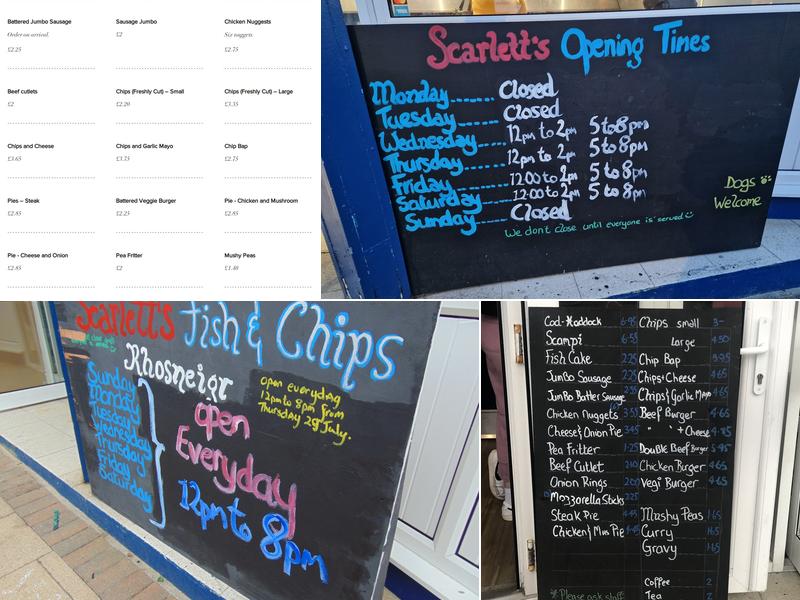 Battered Jumbo Sausage
Order on arrival.
£2.25
Sausage Jumbo
£2
Chicken Nuggets
Six nuggets.
£2.75
Beef cutlets
£2
Chips (Freshly Cut) – Small
£2.20
Chips (Freshly Cut) – Large
£3.35
Chips and Cheese
£3.65
Chips and Garlic Mayo
£3.75
Chip Bap
£2.75
Pies – Steak
£2.85
Battered Veggie Burger
£2.25
Pie - Chicken and Mushroom
£2.85
Pie - Cheese and Onion
£2.85
Pea Fritter
£2
Mushy Peas
£1.40
Scarlett's Opening Times
Monday Closed
Tuesday Closed
Wednesday 12pm to 2pm 5 to 8pm
Thursday 12pm to 2pm 5 to 8pm
Friday 12.00 to 2pm 5 to 8pm
Saturday 12.00 to 2pm 5 to 8pm
Sunday Closed
We dont close until everyone is served
Dogs
Welcome
Scarlett's Fish & Chips
Rhosneigr
Sunday
Monday
Tuesday
Wednesday
Thursday
Friday
Saturday
open
Everyday
12pm to 8pm
open everyday
12pm to 8pm from
Thursday 29th July.
Cod-Haddock 6.95
Scampi 6.55
Fish Cake 2.25
Jumbo Sausage 2.25
Jumbo Batter Sausage
Chicken Nuggets 3.55
Cheese & Onion Pie 3.45
Pea Fritter 1.25
Beef Cutlet 2.10
Onion Rings 2.00
Mozzarella Sticks 2.25
Steak Pie 4.45
Chicken & Mus Pie 4.45
*Please ask staff
Chips small 3-
Large 4.50
Chip Bap 3.95
Chips+Cheese 4.65
Chips & Garlic Mayo 4.65
Beef Burger 4.65
" " + Cheese 4.85
Double Beef Burger 5.95
Chicken Burger 4.65
Vegi Burger 4.65
Mushy Peas 1.65
Curry 1.65
Gravy 1.65
Coffee 2
Tea 2